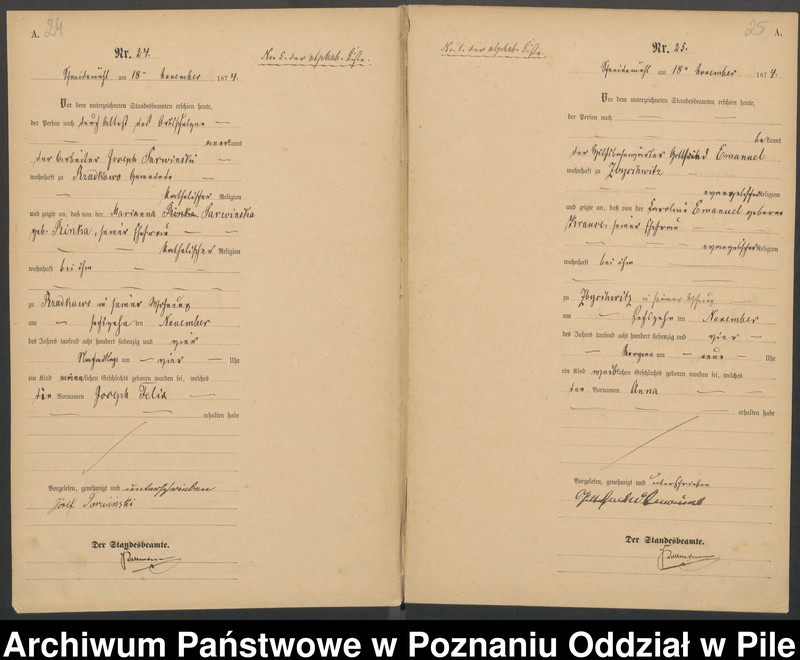 A. 24
Nr. 24.
Schneidemühl am 18ten November 1874.
Vor dem unterzeichneten Standesbeamten erschien heute,
der Person nach durch Attest des
anerkannt
der Arbeiter Joseph Sarwinski
wohnhaft zu Kradkowo
katholischer Religion
und zeigte an, daß von der Marianna Rinka Sarwinska
geb. Rinka, seiner Ehefrau
katholischer Religion
wohnhaft bei ihm
zu Kradkowo in seiner Wohnung
am sechszehn ten November
des Jahres tausend acht hundert siebenzig und vier
Nachmittags um vier Uhr
ein Kind männlichen Geschlechts geboren worden sei, welches
die Vornamen Joseph Felix
erhalten habe
Vorgelesen, genehmigt und unterschrieben
Józef Sarwiński
Der Standesbeamte.
No 5. der alphab. Liste.
No. 1. der alphab. Liste.
25 A.
Nr. 25.
Schneidemühl am 18ten November 1874.
Vor dem unterzeichneten Standesbeamten erschien heute,
der Person nach
bekannt
der Hülfsbahnwärter Gottfried Emanuel
wohnhaft zu
evangelischer Religion
und zeigte an, daß von der Karoline Emanuel geborene
Krause, seiner Ehefrau
evangelischer Religion
wohnhaft bei ihm
zu in seiner Wohnung
am sechszehn ten November
des Jahres tausend acht hundert siebenzig und vier
Morgens um neun Uhr
ein Kind weiblichen Geschlechts geboren worden sei, welches
den Vornamen Anna
erhalten habe
Vorgelesen, genehmigt und unterschrieben
Gottfried Emanuel
Der Standesbeamte.
Archiwum Państwowe w Poznaniu Oddział w Pile